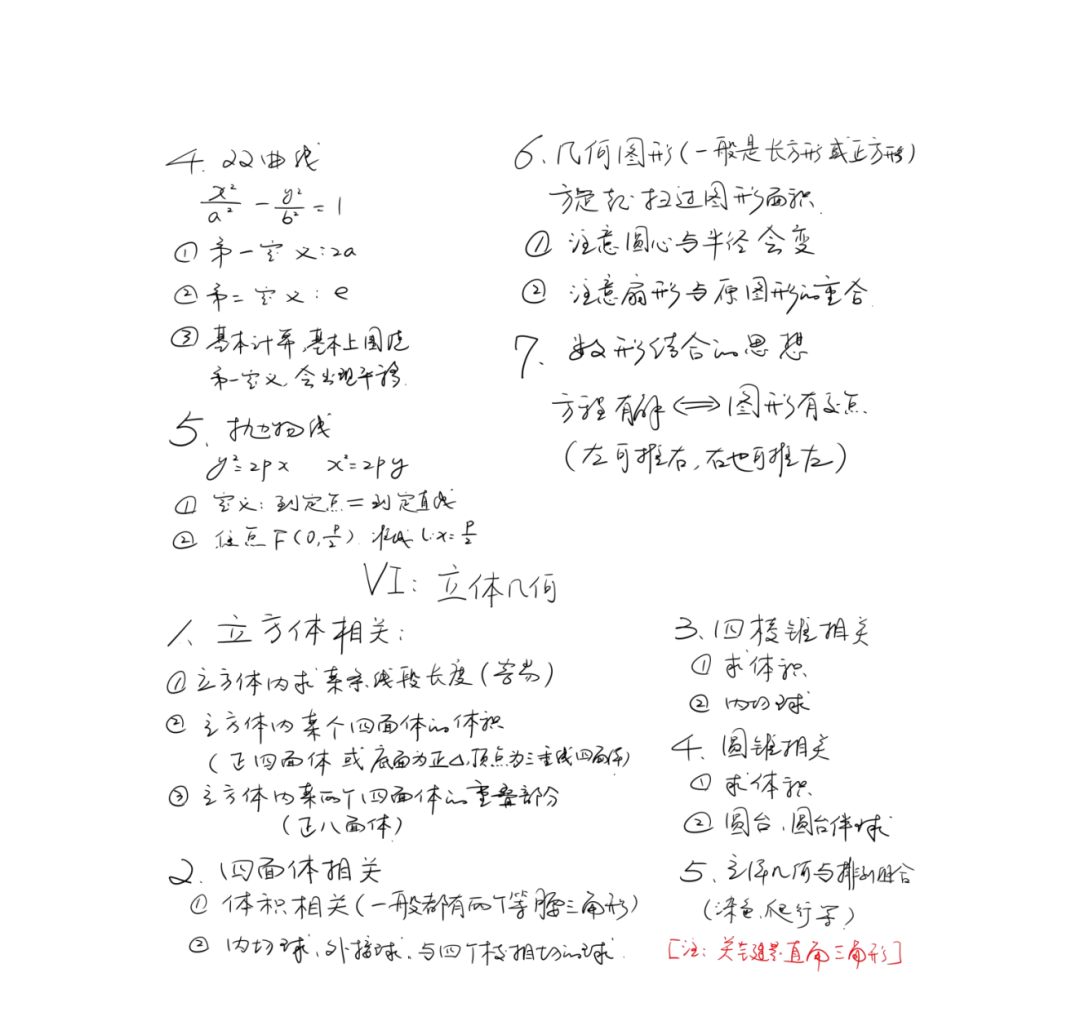 4. 双曲线
x²/a² - y²/b² = 1
① 第一定义:2a
② 第二定义:e
③ 基本计算,基本上围绕
第一定义,会出现平移.
5. 抛物线
y²=2px x²=2py
① 定义:到定点=到定直线
② 焦点F(0,p/2) 准线l:x=p/2
6. 几何图形(一般是长方形或正方形)
旋转扫过图形面积.
① 注意圆心与半径会变
② 注意扇形与原图形的重合.
7. 数形结合的思想
方程有解⟺图形有交点.
(左可推右,右也可推左)
VI: 立体几何
1. 立方体相关:
① 立方体内求某条线段长度(容易)
② 立方体内某个四面体的体积
(正四面体或底面为正△,顶点为三垂线四面体)
③ 立方体内某两个四面体的重叠部分
(正八面体)
2. 四面体相关
① 体积相关(一般都有两个等腰三角形)
② 内切球、外接球、与四个棱相切的球.
3. 四棱锥相关
① 求体积.
② 内切球
4. 圆锥相关
① 求体积.
② 圆台、圆台伴球
5. 立体几何与排列组合
(染色,爬行等)
[注: 关键是直角三角形]